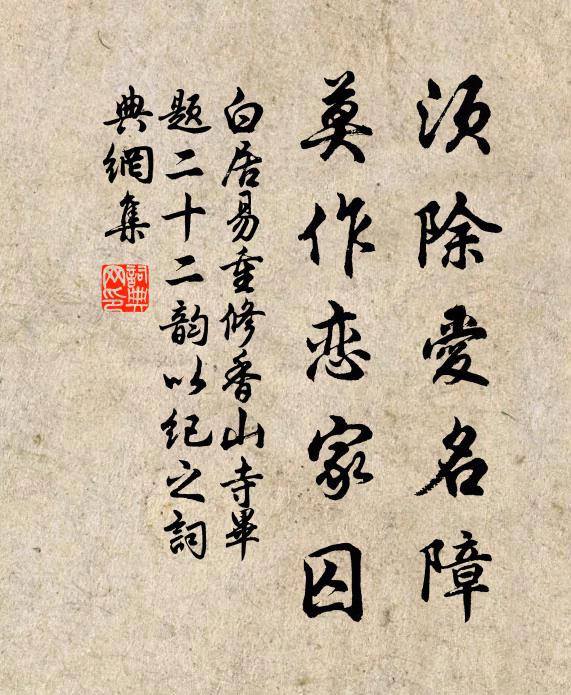 须除愛名障
莫作恋家囚
白居易重修香山寺畢
题二十二韵以纪之詞
典網集
詞典
网印